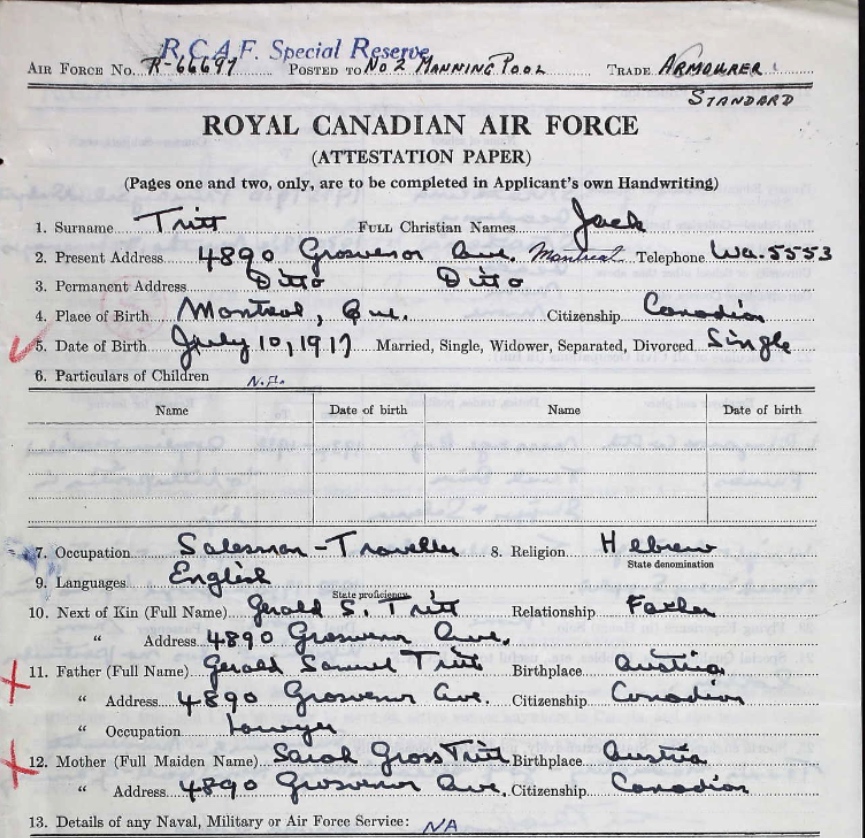 R.C.A.F. Special Reserve
AIR FORCE NO. R-66697 POSTED TO No 2 MANNING POOL TRADE ARMOURER
STANDARD
ROYAL CANADIAN AIR FORCE
(ATTESTATION PAPER)
(Pages one and two, only, are to be completed in Applicant's own Handwriting)
1. Surname Tritt FULL Christian Names Jack
2. Present Address 4890 Grosvenor Ave. Montreal Telephone Wa. 5553
3. Permanent Address Ditto Ditto
4. Place of Birth Montreal, Que. Citizenship Canadian
5. Date of Birth July 10, 1917 Married, Single, Widower, Separated, Divorced Single
6. Particulars of Children N.A.
Name Date of birth Name Date of birth
7. Occupation Salesman - Traveller 8. Religion Hebrew
State denomination
9. Languages English
State proficiency
10. Next of Kin (Full Name) Gerald S. Tritt Relationship Father
" Address 4890 Grosvenor Ave.
11. Father (Full Name) Gerald Samuel Tritt Birthplace Austria
" Address 4890 Grosvenor Ave. Citizenship Canadian
" Occupation Lawyer
12. Mother (Full Maiden Name) Sarah Gross Tritt Birthplace Austria
" Address 4890 Grosvenor Ave. Citizenship Canadian
13. Details of any Naval, Military or Air Force Service: NA